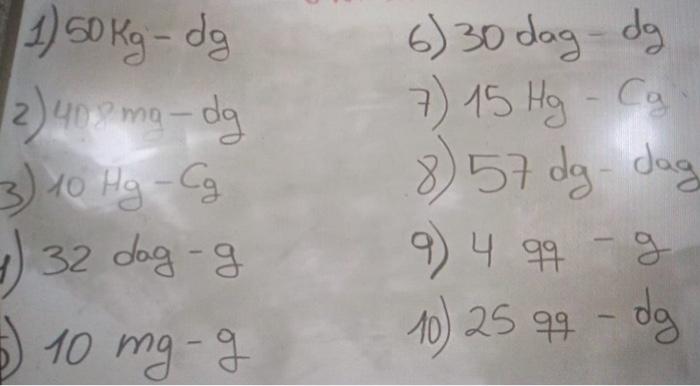 1) 50 Kg - dg
2) 408 mg - dg
3) 10 Hg - Cg
) 32 dag - g
) 10 mg - g
6) 30 dag - dg
7) 15 Hg - Cg
8) 57 dg - dag
9) 4 qq - g
10) 25 qq - dg